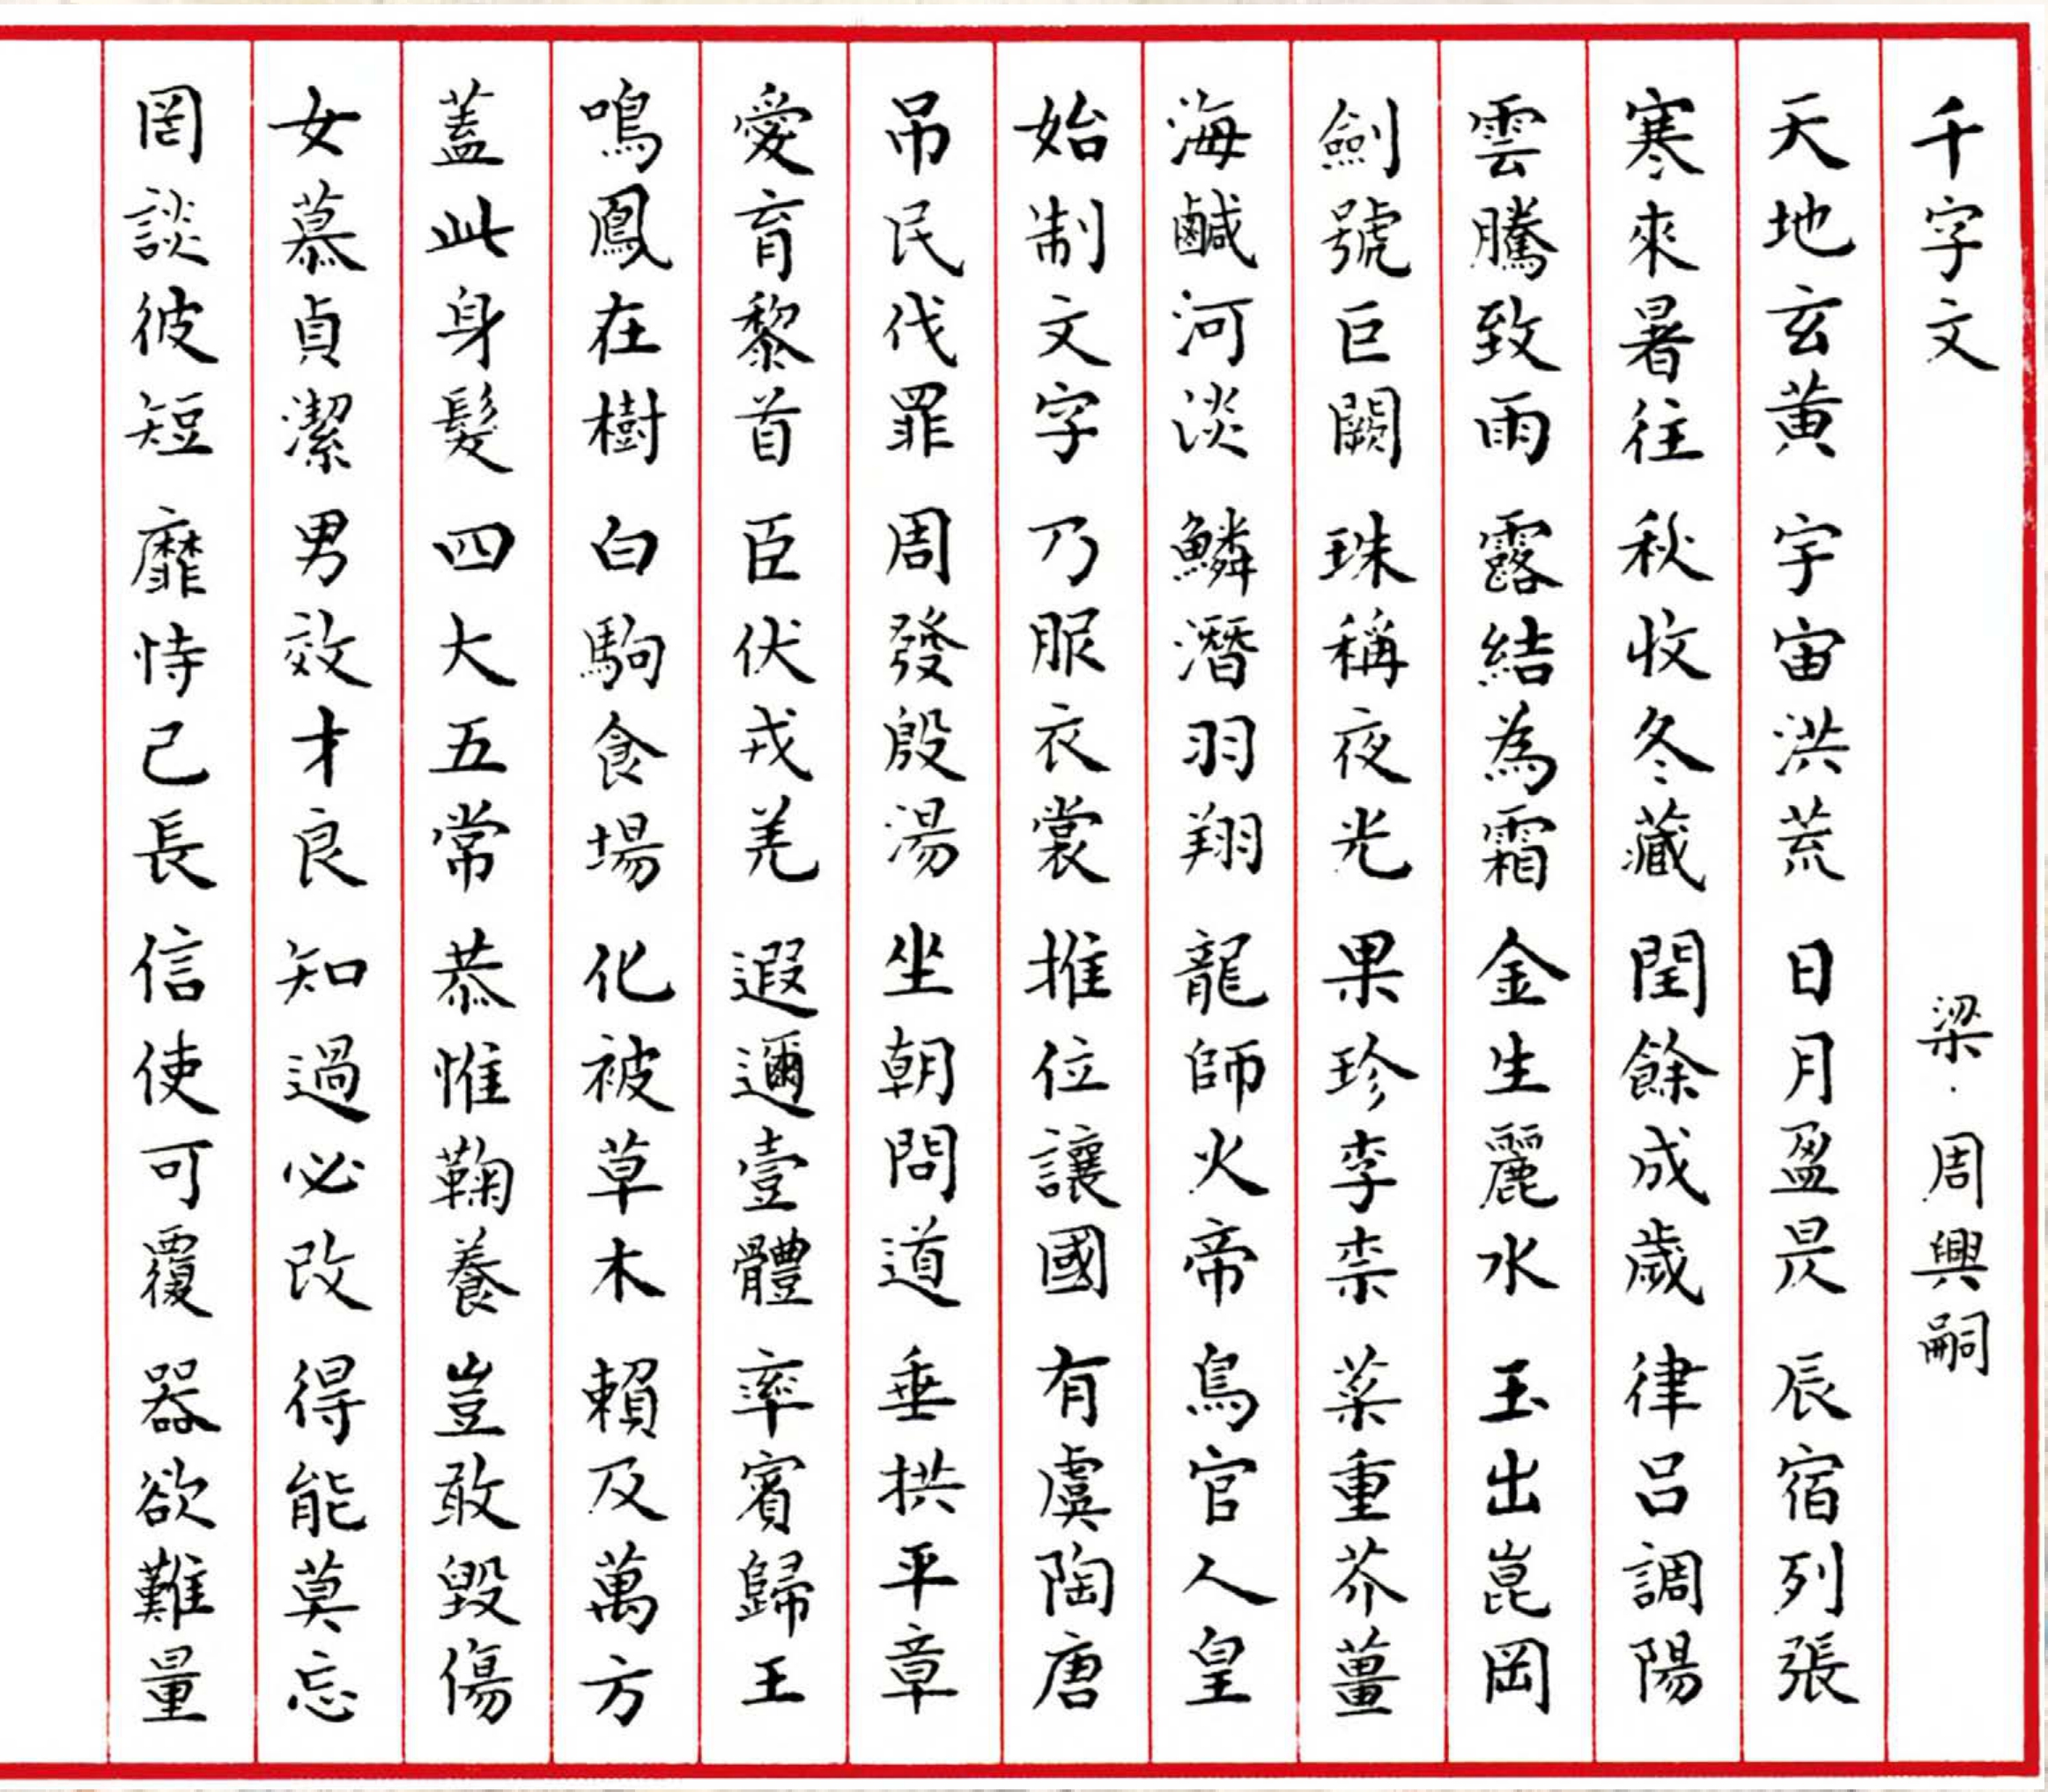 千字文 梁·周興嗣
天地玄黄 宇宙洪荒 日月盈昃 辰宿列張
寒來暑往 秋收冬藏 閏餘成歲 律呂調陽
雲騰致雨 露結為霜 金生麗水 玉出崑岡
劍號巨闕 珠稱夜光 果珍李柰 菜重芥薑
海鹹河淡 鱗潛羽翔 龍師火帝 鳥官人皇
始制文字 乃服衣裳 推位讓國 有虞陶唐
吊民伐罪 周發殷湯 坐朝問道 垂拱平章
愛育黎首 臣伏戎羌 遐邇壹體 率賓歸王
鳴鳳在樹 白駒食場 化被草木 賴及萬方
蓋此身髮 四大五常 恭惟鞠養 豈敢毀傷
女慕貞潔 男效才良 知過必改 得能莫忘
罔談彼短 靡恃己長 信使可覆 器欲難量